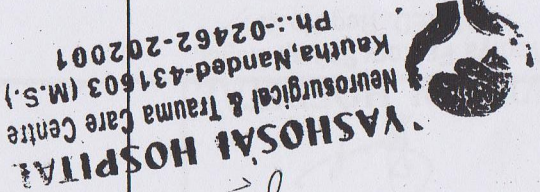 YASHOSAI HOSPITAL
Neurosurgical & Trauma Care Centre
Kautha, Nanded-431603 (M.S.)
Ph.:-02462-202001